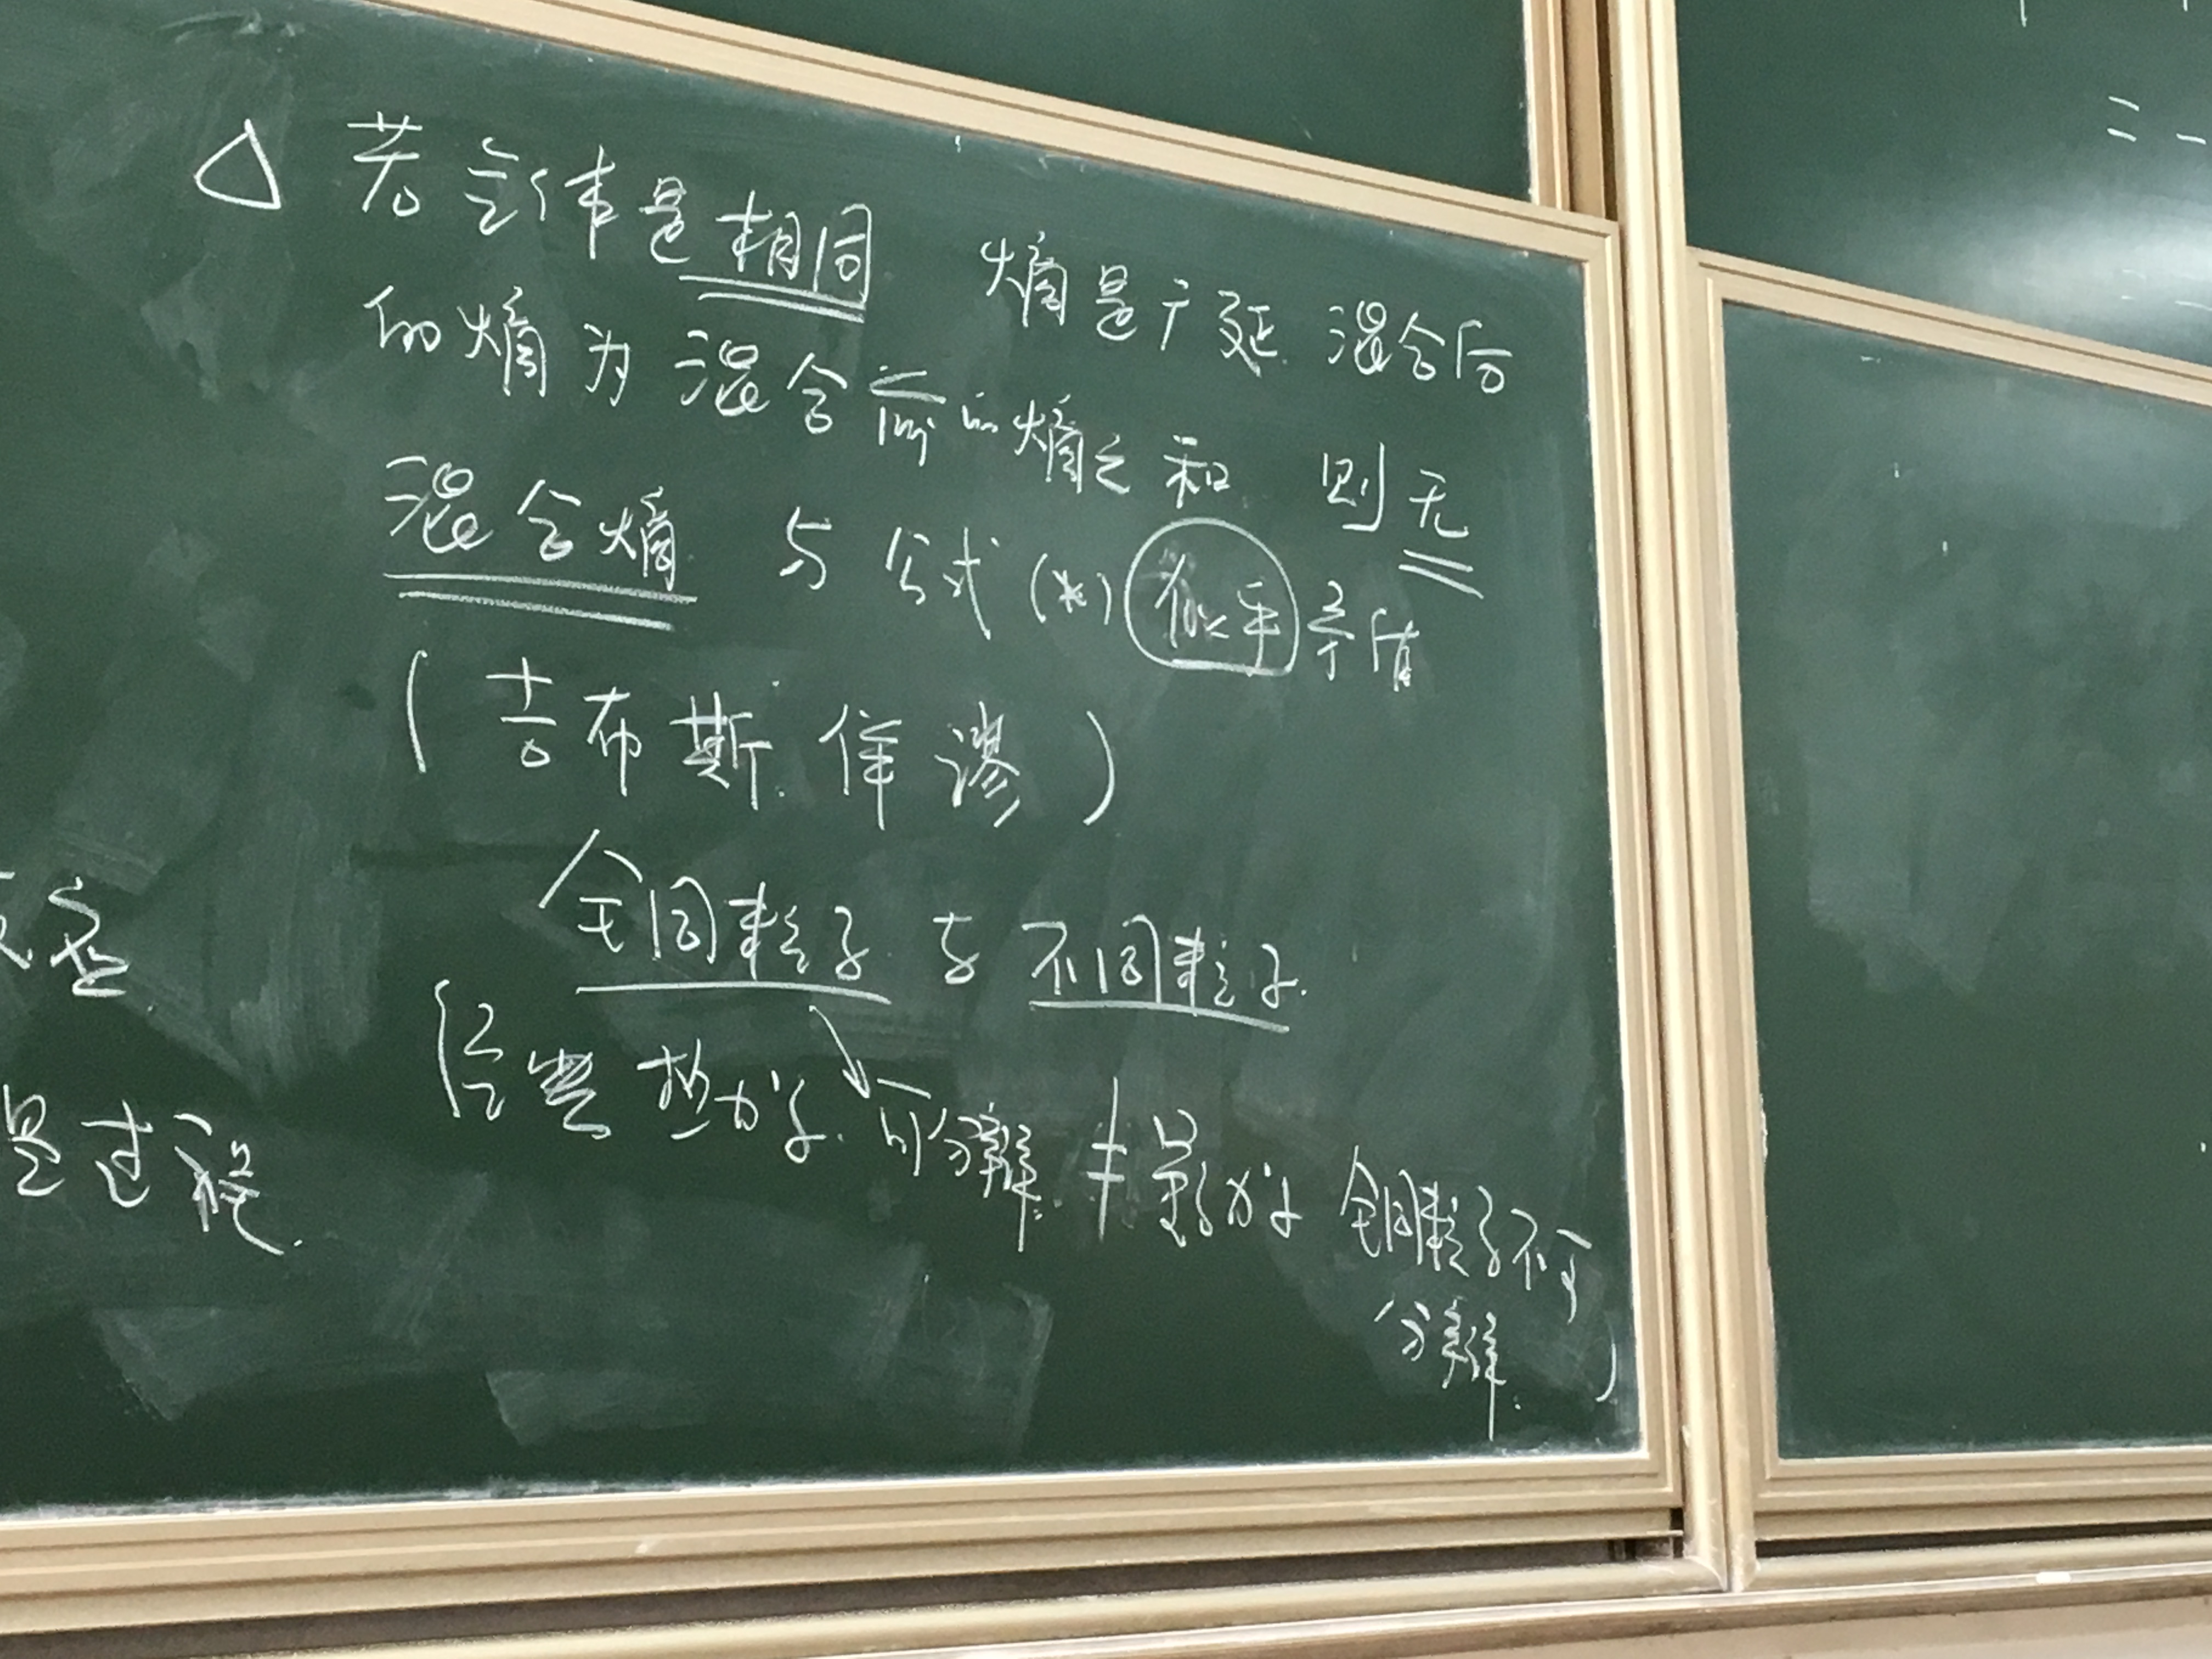 △ 若气体是相同 熵是广延 混合后
的熵为混合前的熵之和 则无
混合熵 与公式(*)似乎矛盾
(吉布斯佯谬)
全同粒子与不同粒子.
(经典热力学.可分辨.量力学 全同粒子不可
分辨.)
是过程.